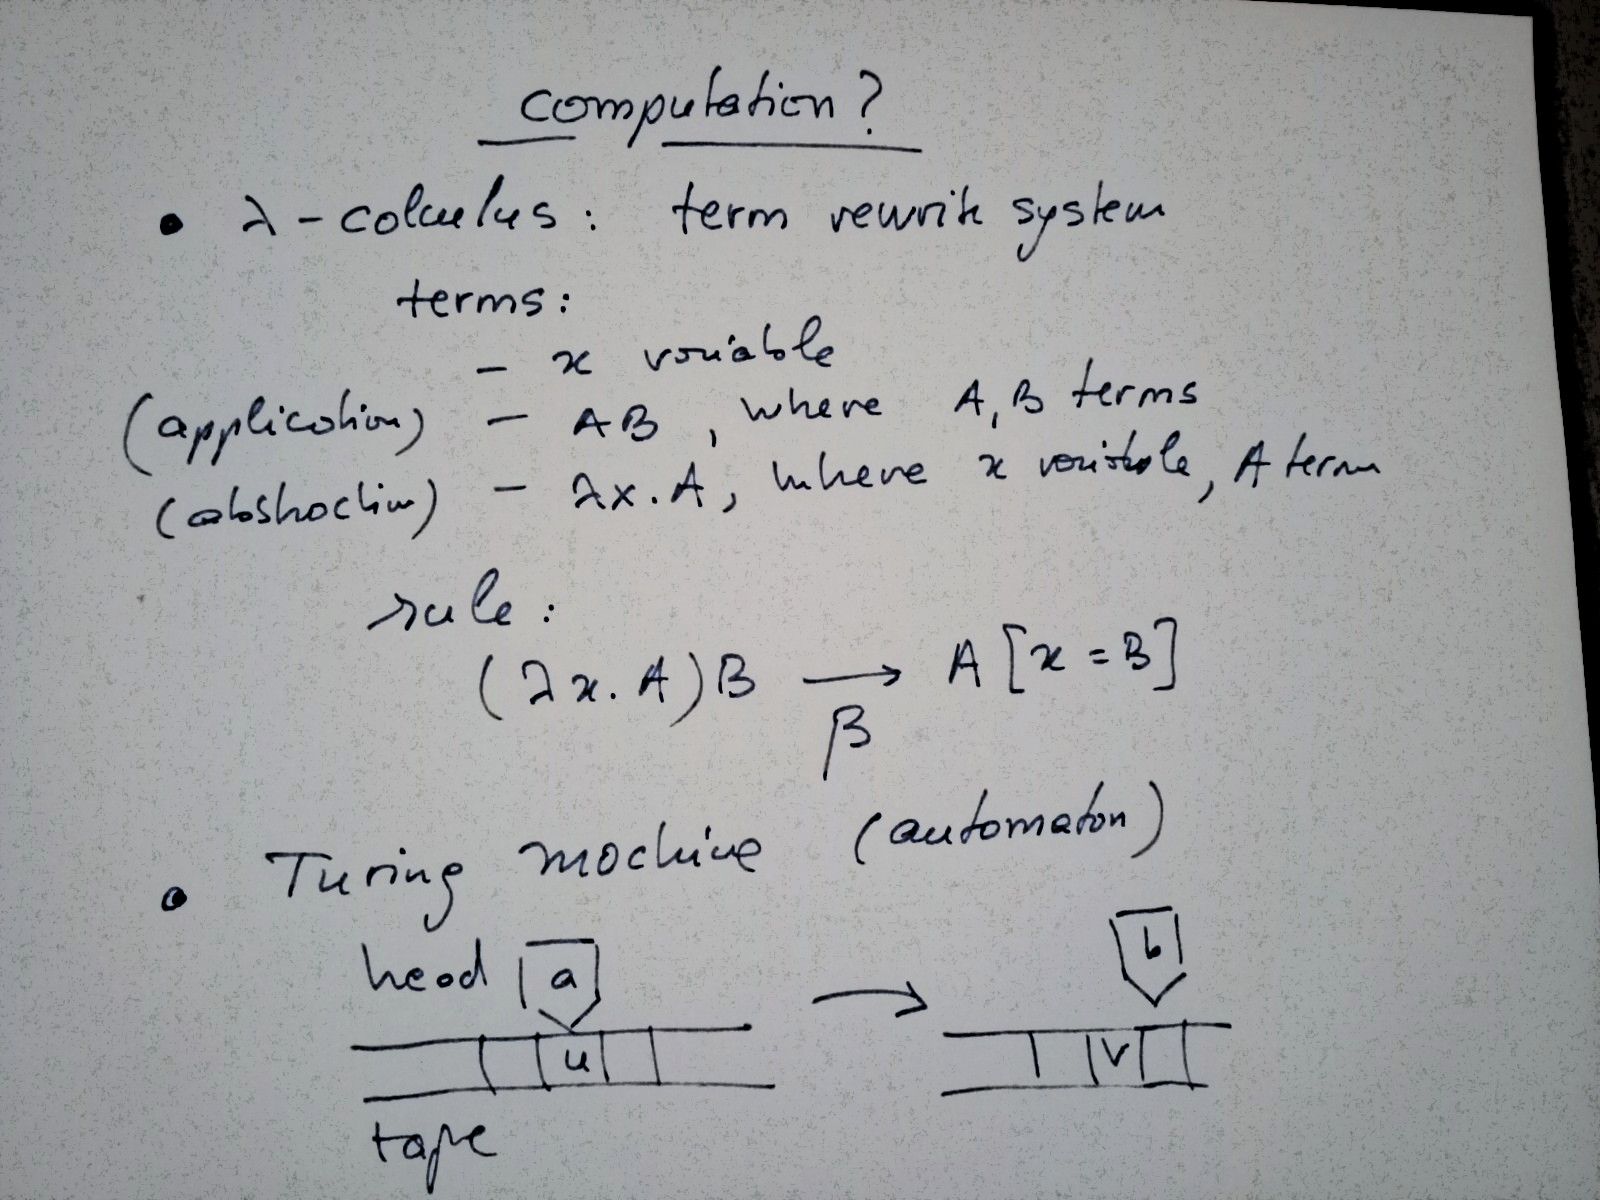 computation?
• λ-calculus: term rewrite system
terms:
- x variable
(application) - AB, where A, B terms
(abstraction) - λx.A, where x variable, A term
rule:
(λx.A)B → A[x=B]
β
• Turing machine (automaton)
head a → b
u v
tape